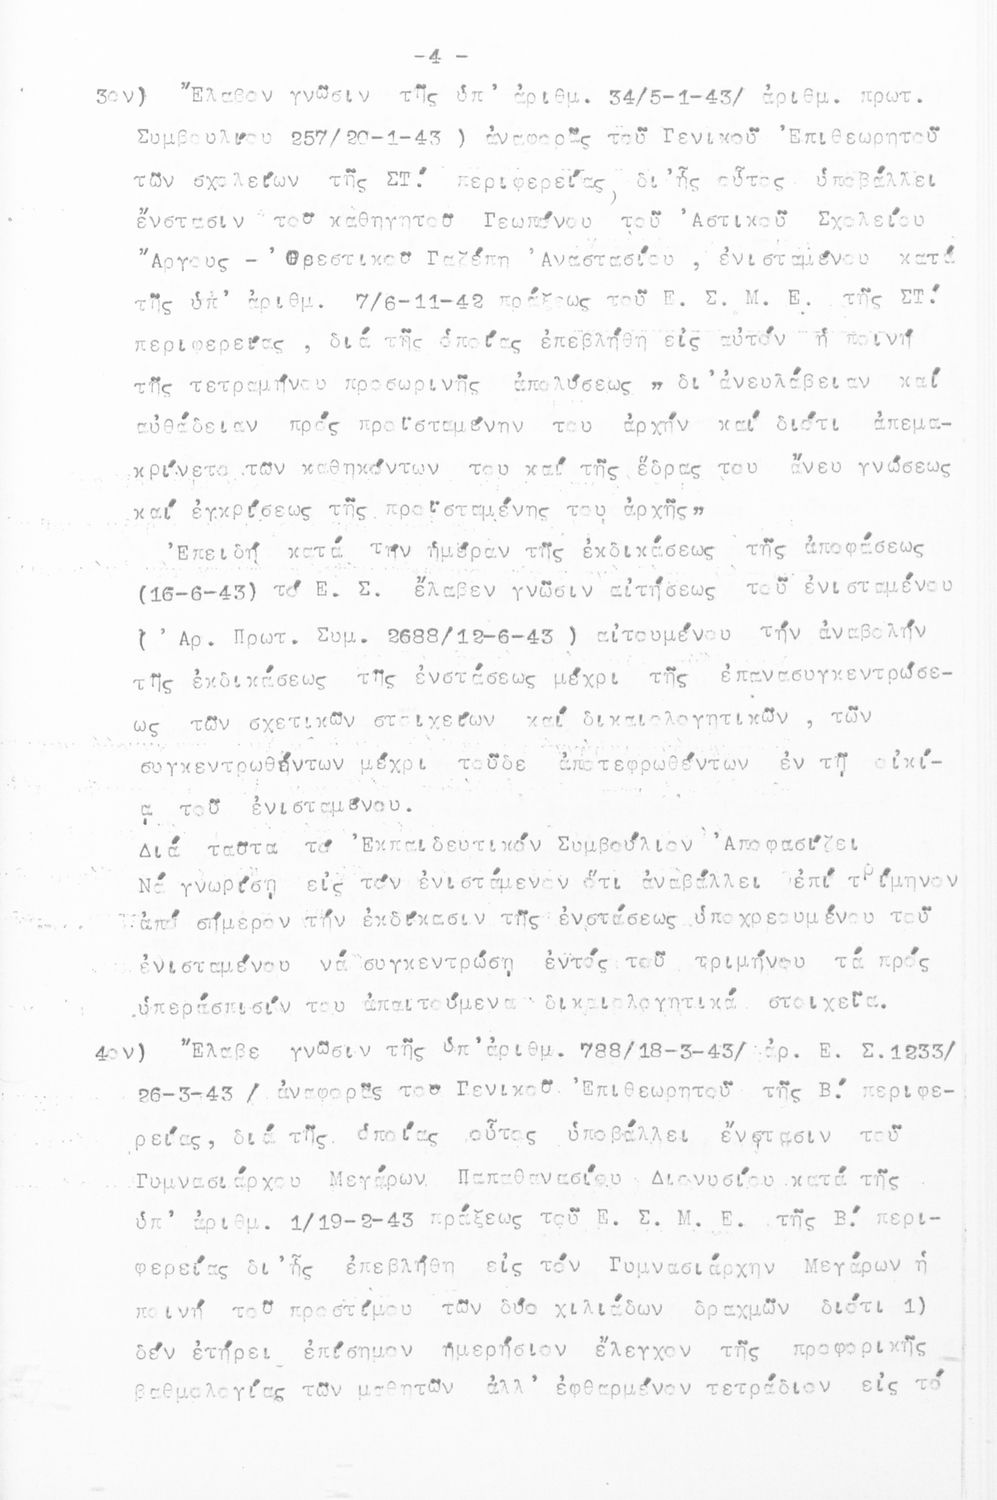 -4 -
3ον) "Ελαβον γνῶσιν τῆς ὑπ' ἀριθμ. 34/5-1-43/ ἀριθμ. πρωτ.
Συμβουλίου 257/20-1-43 ) ἀναφορᾶς τοῦ Γενικοῦ 'Επιθεωρητοῦ
τῶν σχολείων τῆς ΣΤ! περιφερείας, δι'ἧς οὗτος ὑποβάλλει
ἔνστασιν τοῦ καθηγητοῦ Γεωπόνου τοῦ 'Αστικοῦ Σχολείου
"Αργους - 'Ορεστικοῦ Γαζέπη 'Αναστασίου , ἐνισταμένου κατά
τῆς ὑπ' ἀριθμ. 7/6-11-42 πράξεως τοῦ Ε. Σ. Μ. Ε. τῆς ΣΤ!
περιφερείας , διά τῆς ὁποίας ἐπεβλήθη εἰς αὐτόν ἡ ποινή
τῆς τετραμήνου προσωρινῆς ἀπολύσεως " δι'ἀνευλάβειαν καί
αὐθάδειαν πρός προϊσταμένην του ἀρχήν καί διότι ἀπεμα-
κρίνετο τῶν καθηκόντων του καί τῆς ἕδρας του ἄνευ γνώσεως
καί ἐγκρίσεως τῆς προϊσταμένης του ἀρχῆς"
'Επειδή κατά τήν ἡμέραν τῆς ἐκδικάσεως τῆς ἀποφάσεως
(16-6-43) τό Ε. Σ. ἔλαβεν γνῶσιν αἰτήσεως τοῦ ἐνισταμένου
( ' Αρ. Πρωτ. Συμ. 2688/12-6-43 ) αἰτουμένου τήν ἀναβολήν
τῆς ἐκδικάσεως τῆς ἐνστάσεως μέχρι τῆς ἐπανασυγκεντρώσε-
ως τῶν σχετικῶν στοιχείων καί δικαιολογητικῶν , τῶν
συγκεντρωθέντων μέχρι τοῦδε ἀποτεφρωθέντων ἐν τῇ οἰκί-
ᾳ τοῦ ἐνισταμένου.
Διά ταῦτα τό 'Εκπαιδευτικόν Συμβούλιον 'Αποφασίζει
Νά γνωρίσῃ εἰς τόν ἐνιστάμενον ὅτι ἀναβάλλει ἐπί τρίμηνον
ἀπό σήμερον τήν ἐκδίκασιν τῆς ἐνστάσεως ὑποχρεουμένου τοῦ
ἐνισταμένου νά συγκεντρώσῃ ἐντός τοῦ τριμήνου τά πρός
ὑπεράσπισίν του ἀπαιτούμενα δικαιολογητικά στοιχεῖα.
4ον) "Ελαβε γνῶσιν τῆς ὑπ'ἀριθμ. 788/18-3-43/ ἀρ. Ε. Σ.1233/
26-3-43 / ἀναφορᾶς τοῦ Γενικοῦ 'Επιθεωρητοῦ τῆς Β! περιφε-
ρείας, διά τῆς ὁποίας οὗτος ὑποβάλλει ἔνστασιν τοῦ
Γυμνασιάρχου Μεγάρων Παπαθανασίου Διονυσίου κατά τῆς
ὑπ' ἀριθμ. 1/19-2-43 πράξεως τοῦ Ε. Σ. Μ. Ε. τῆς Β! περι-
φερείας δι'ἧς ἐπεβλήθη εἰς τόν Γυμνασιάρχην Μεγάρων ἡ
ποινή τοῦ προστίμου τῶν δύο χιλιάδων δραχμῶν διότι 1)
δέν ἐτήρει ἐπίσημον ἡμερήσιον ἔλεγχον τῆς προφορικῆς
βαθμολογίας τῶν μαθητῶν ἀλλ' ἐφθαρμένον τετράδιον εἰς τό